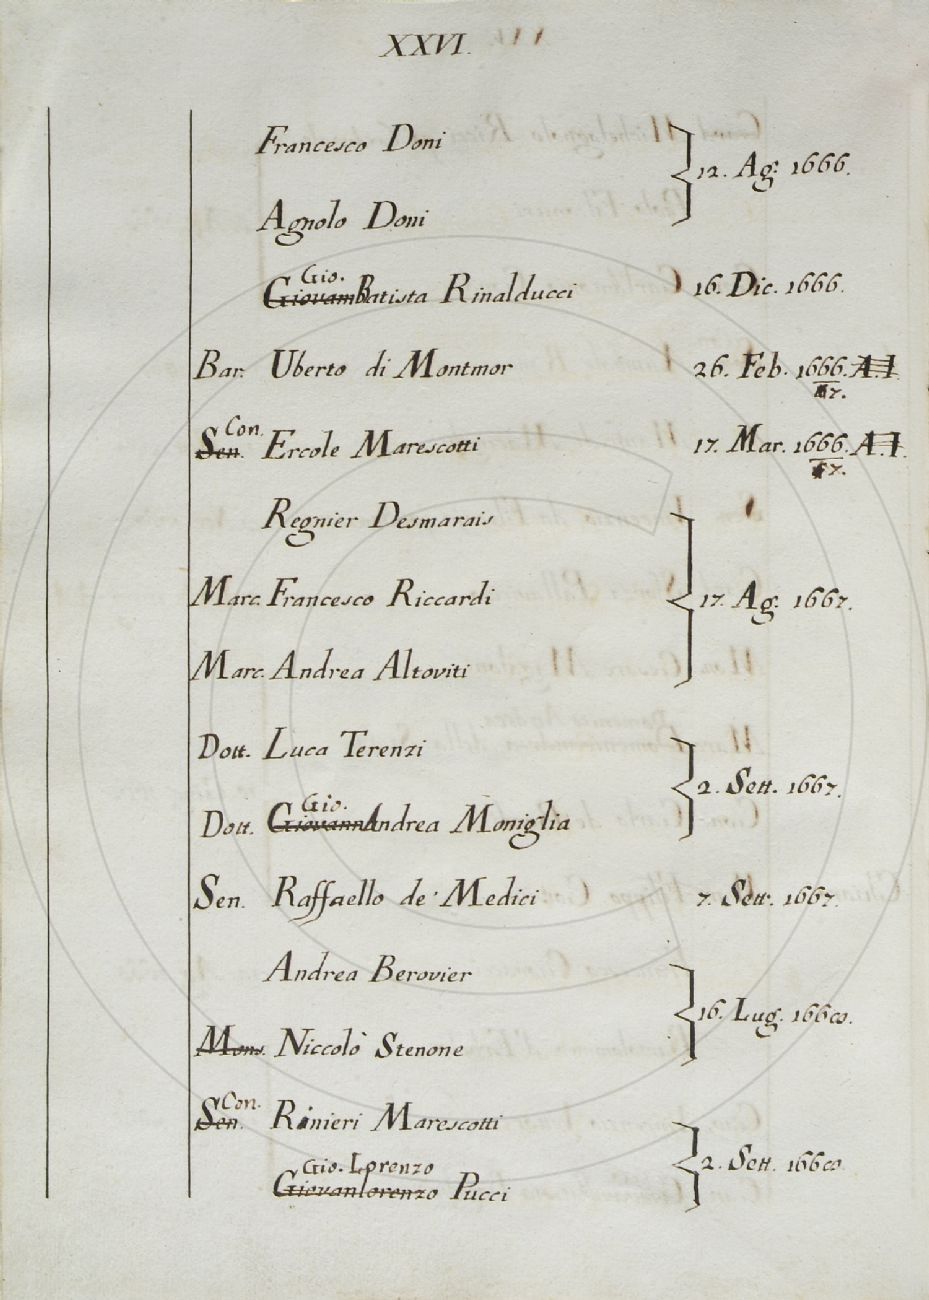 XXVI.
Francesco Doni
12. Ag: 1666.
Agnolo Doni
Gio.
GiovamBatista Rinalducci 16. Dic. 1666.
Bar. Uberto di Montmor 26. Feb. 1666. A.I.
7.
Con.
Sen. Ercole Marescotti 17. Mar. 1666. A.I.
7.
Regnier Desmarais
Marc. Francesco Riccardi 17. Ag: 1667.
Marc. Andrea Altoviti
Dott. Luca Terenzi
2. Sett. 1667.
Gio.
Dott. GiovannAndrea Moniglia
Sen. Raffaello de' Medici 7. Sett. 1667.
Andrea Berovier
16. Lug. 1668.
Mons. Niccolò Stenone
Con.
Sen. Rinieri Marescotti
2. Sett. 1668
Gio. Lorenzo
Giovanlorenzo Pucci